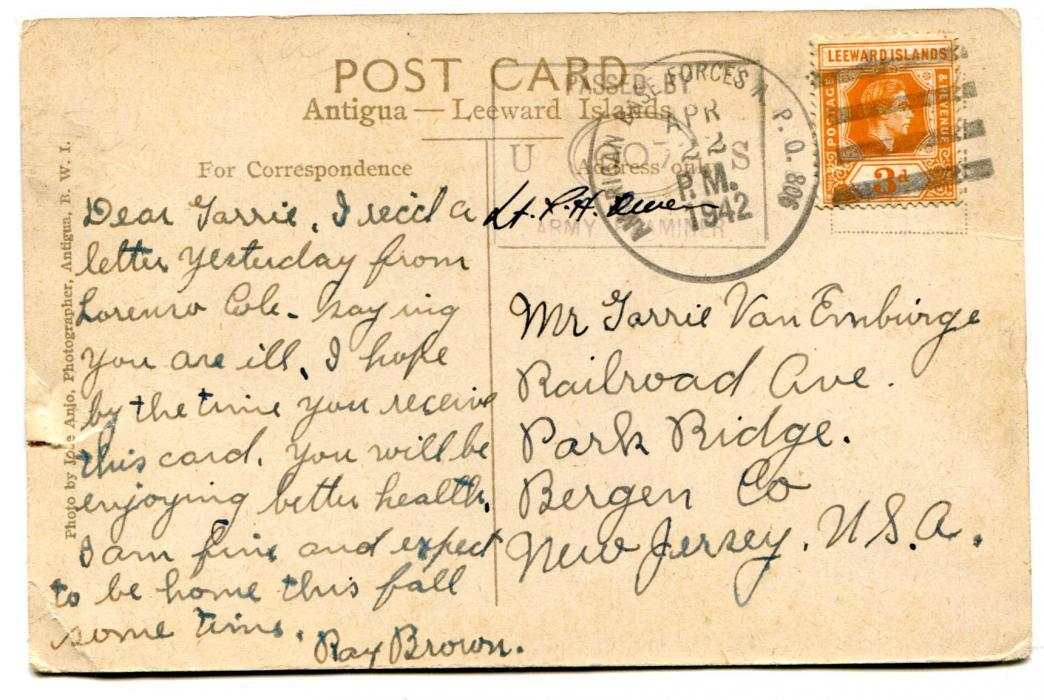 POST CARD
Antigua — Leeward Islands
For Correspondence
Address only
PASSED BY
U S
ARMY EXAMINER
Lt. P. H.
AMERICAN BASE FORCES A. P. O. 806
APR
22
P.M.
1942
LEEWARD ISLANDS
POSTAGE
& REVENUE
3d
Photo by José Anjo, Photographer, Antigua, B. W. I.
Dear Garrie, I rec'd a
letter yesterday from
Lorenzo Cole. saying
you are ill, I hope
by the time you receive
this card, you will be
enjoying better health,
I am fine and expect
to be home this fall
some time.
Ray Brown.
Mr Garrie Van Emburge
Railroad Ave.
Park Ridge.
Bergen Co
New Jersey. U.S.A.